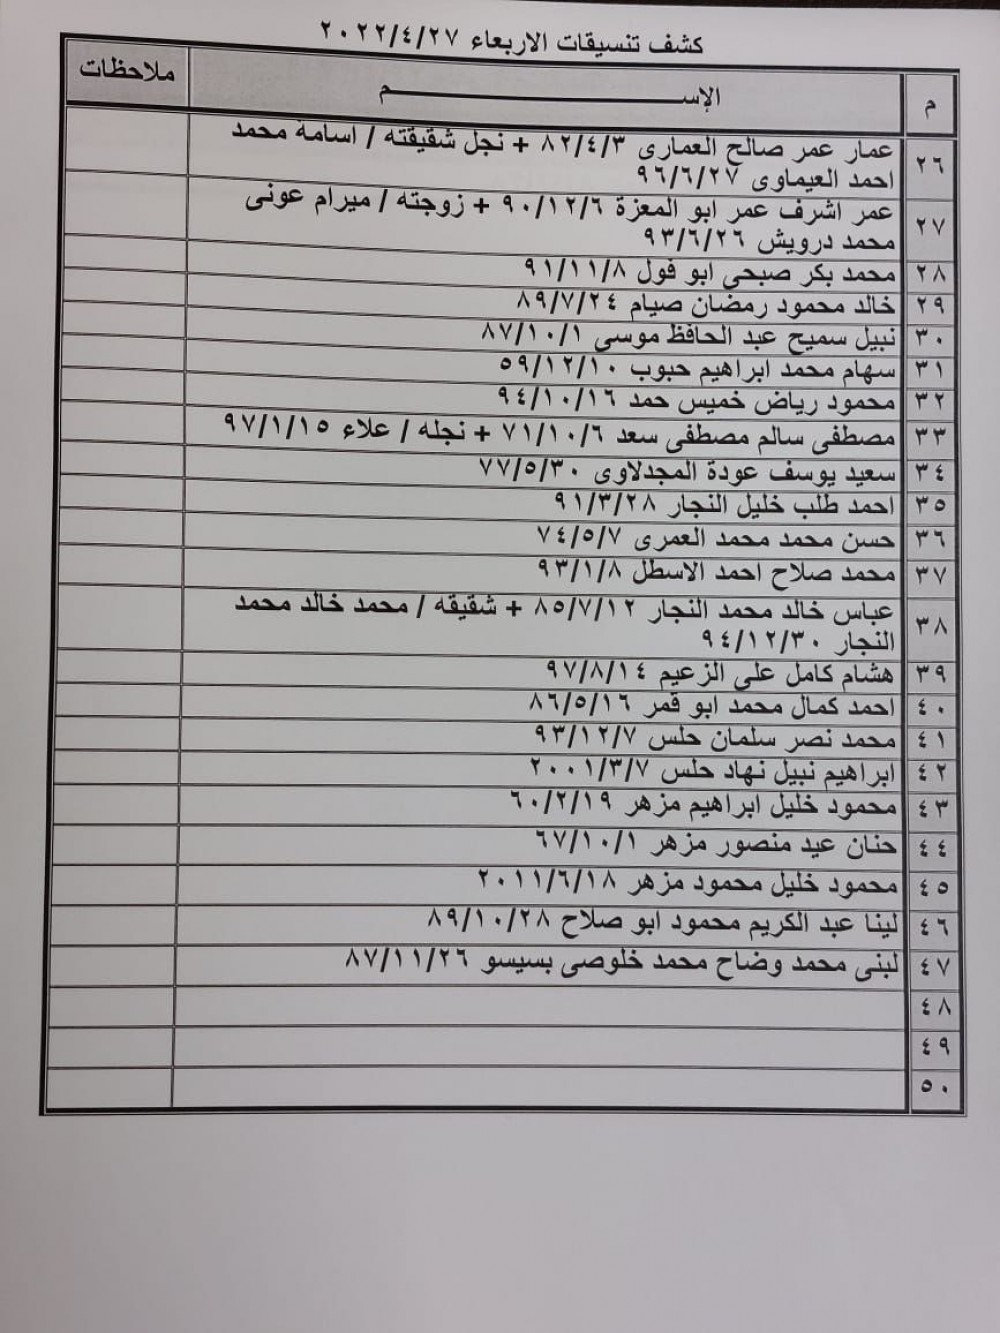 كشف تنسيقات الاربعاء ٢٠٢٢/٤/٢٧
م الإســـــم ملاحظات
٢٦ عمار عمر صالح العمارى ٨٢/٤/٣ + نجل شقيقته / اسامة محمد
احمد العيماوى ٩٦/٦/٢٧
٢٧ عمر اشرف عمر ابو المعزة ٩٠/١٢/٦ + زوجته / ميرام عونى
محمد درويش ٩٣/٦/٢٦
٢٨ محمد بكر صبحى ابو فول ٩١/١١/٨
٢٩ خالد محمود رمضان صيام ٨٩/٧/٢٤
٣٠ نبيل سميح عبد الحافظ موسى ٨٧/١٠/١
٣١ سهام محمد ابراهيم حبوب ٥٩/١٢/١٠
٣٢ محمود رياض خميس حمد ٩٤/١٠/١٦
٣٣ مصطفى سالم مصطفى سعد ٧١/١٠/٦ + نجله / علاء ٩٧/١/١٥
٣٤ سعيد يوسف عودة المجدلاوى ٧٧/٥/٣٠
٣٥ احمد طلب خليل النجار ٩١/٣/٢٨
٣٦ حسن محمد محمد العمرى ٧٤/٥/٧
٣٧ محمد صلاح احمد الاسطل ٩٣/١/٨
٣٨ عباس خالد محمد النجار ٨٥/٧/١٢ + شقيقه / محمد خالد محمد
النجار ٩٤/١٢/٣٠
٣٩ هشام كامل على الزعيم ٩٧/٨/١٤
٤٠ احمد كمال محمد ابو قمر ٨٦/٥/١٦
٤١ محمد نصر سلمان حلس ٩٣/١٢/٧
٤٢ ابراهيم نبيل نهاد حلس ٢٠٠١/٣/٧
٤٣ محمود خليل ابراهيم مزهر ٦٠/٢/١٩
٤٤ حنان عيد منصور مزهر ٦٧/١٠/١
٤٥ محمود خليل محمود مزهر ٢٠١١/٦/١٨
٤٦ لينا عبد الكريم محمود ابو صلاح ٨٩/١٠/٢٨
٤٧ لبنى محمد وضاح محمد خلوصى بسيسو ٨٧/١١/٢٦
٤٨
٤٩
٥٠